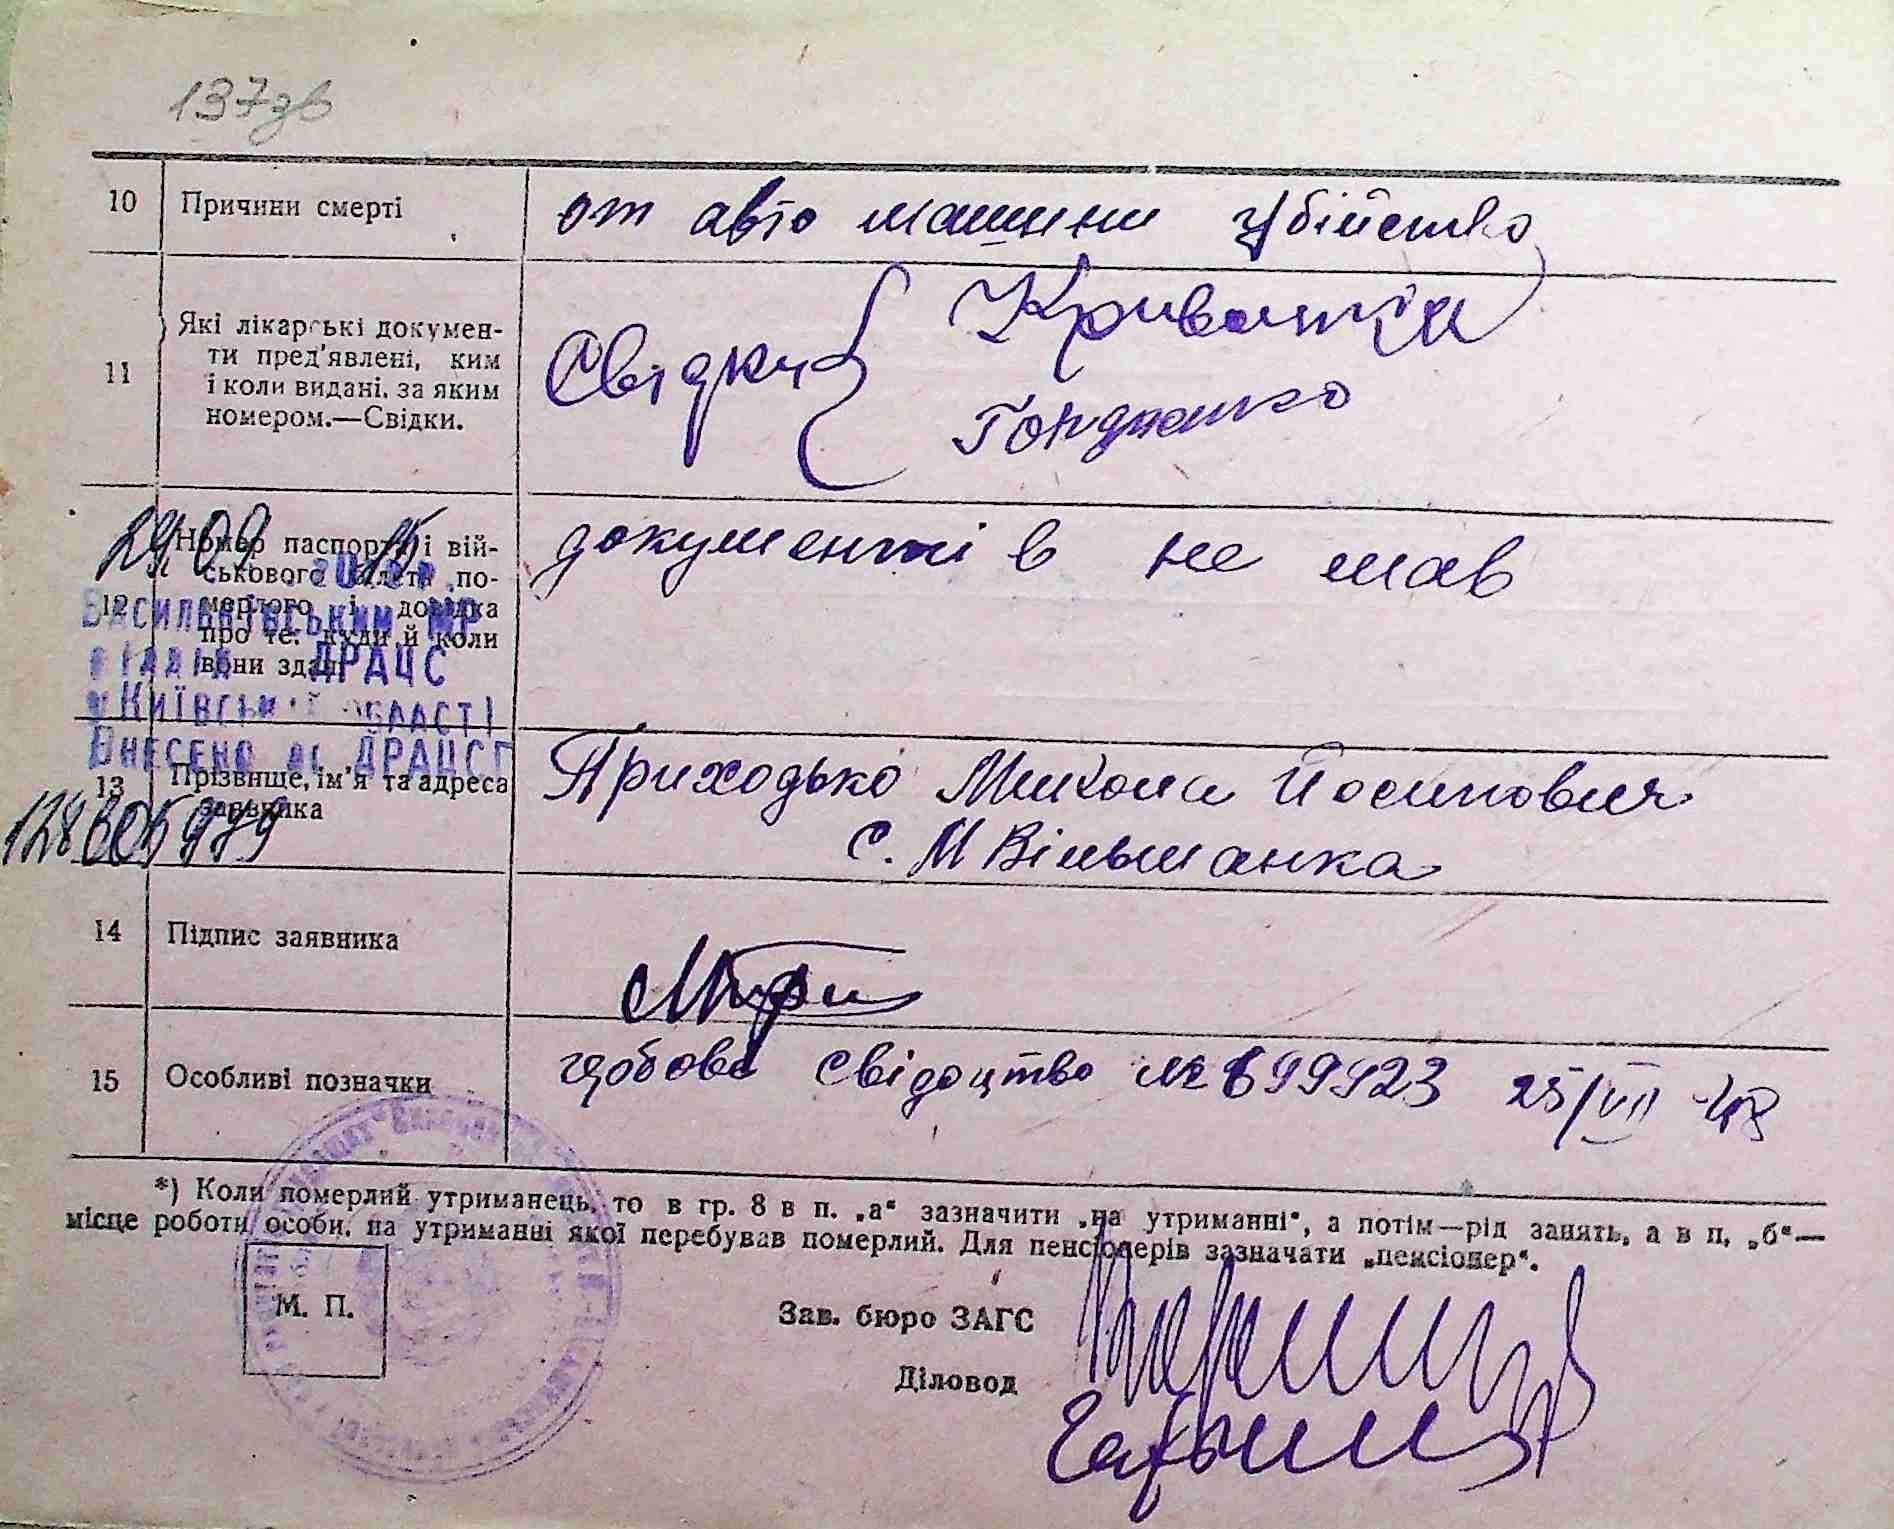 137зв
10 Причини смерті от авто машини убійство
11 Які лікарські документи пред'явлені, ким і коли видані, за яким номером.—Свідки. Свідки
12 Номер паспорта і військового білета померлого і довідка про те, куди й коли вони здані документів не мав
29 09 15
Васильківським МР
відділ ДРАЦС
Київській області
Внесено до ДРАЦСГ
13 Прізвище, ім'я та адреса заявника Приходько Микола Йосипович
с. М Вільшанка
14 Підпис заявника
15 Особливі позначки свідоцтво № 25/VII-48
*) Коли померлий утриманець, то в гр. 8 в п. „а“ зазначити „на утриманні“, а потім—рід занять, а в п. „б“—
місце роботи особи, на утриманні якої перебував померлий. Для пенсіонерів зазначати „пенсіонер“.
М. П.
Зав. бюро ЗАГС
Діловод